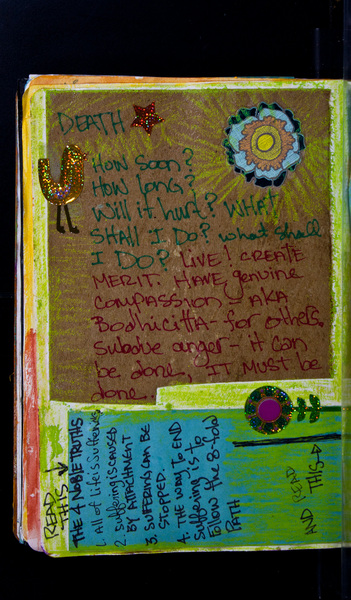 DEATH
HOW SOON?
HOW LONG?
Will it hurt? WHAT
SHALL I DO? what shall
I DO? LIVE! CREATE
MERIT. HAVE genuine
compassion - AKA
Bodhicitta - for others.
subdue anger - it can
be done, IT MUST be
done..
READ
THIS
THE 4 NOBLE TRUTHS
1. All of life is suffering.
2. Suffering is caused
BY ATTACHMENT
3. SUFFERING CAN BE
STOPPED.
4. THE WAY TO END
suffering is to
follow the 8-fold
PATH
AND READ
THIS